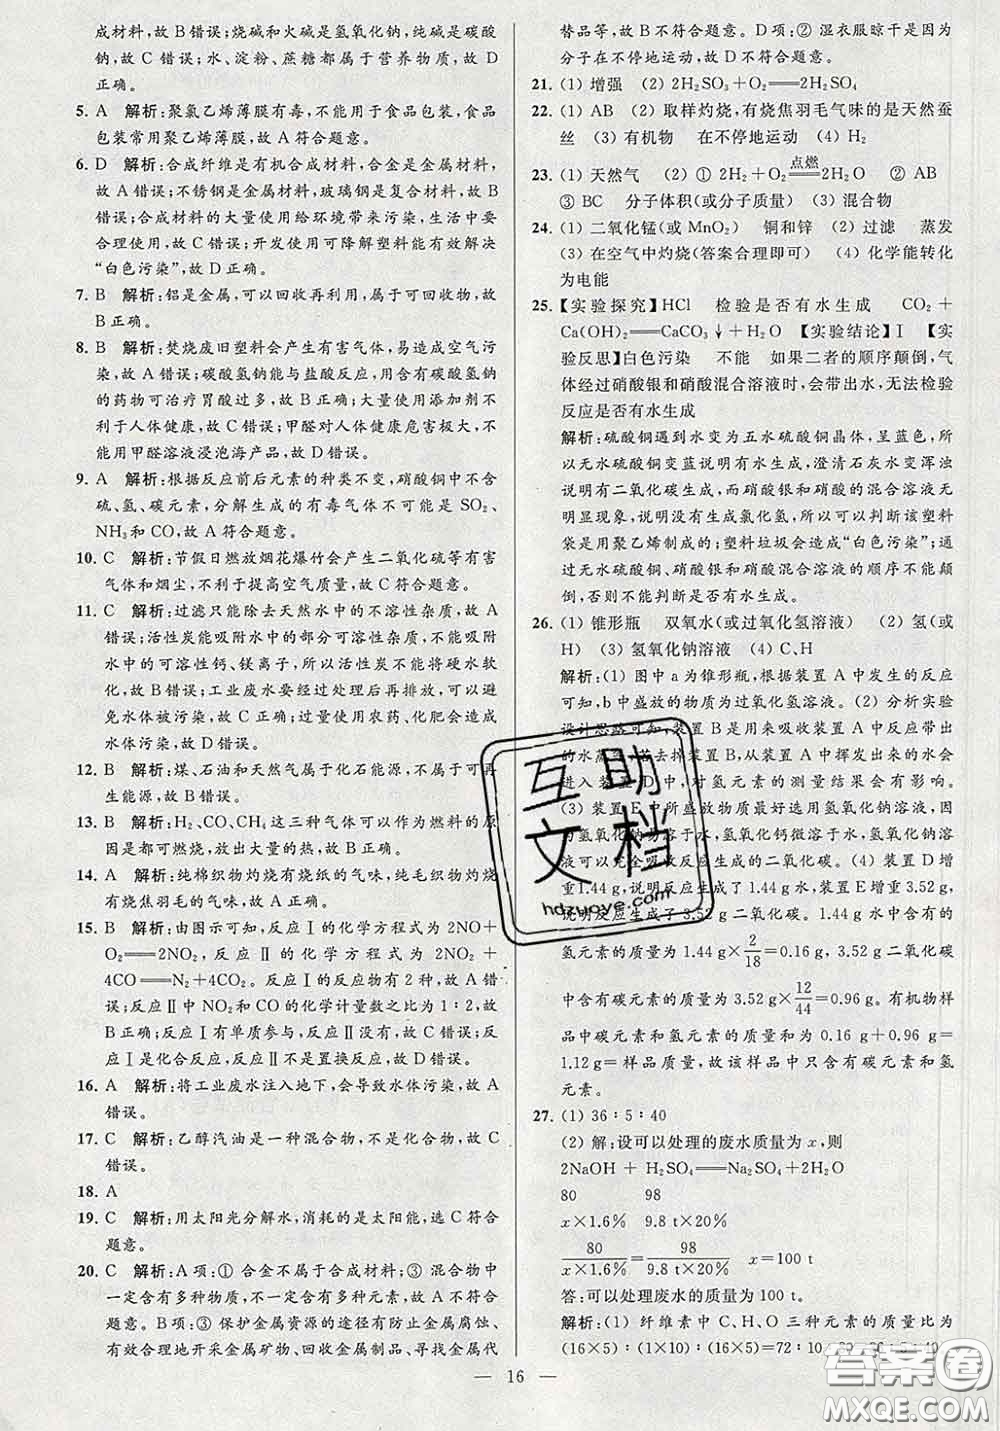 成材料,故B错误;烧碱和火碱是氢氧化钠,纯碱是碳酸
钠,故C错误;水、淀粉、蔗糖都属于营养物质,故D
正确。
5. A 解析:聚氯乙烯薄膜有毒,不能用于食品包装,食品
包装常用聚乙烯薄膜,故A符合题意。
6. D 解析:合成纤维是有机合成材料,合金是金属材料,
故A错误;不锈钢是金属材料,玻璃钢是复合材料,故B
错误;合成材料的大量使用给环境带来污染,生活中要
合理使用,故C错误;开发使用可降解塑料能有效解决
“白色污染”,故D正确。
7. B 解析:铝是金属,可以回收再利用,属于可回收物,故
B正确。
8. B 解析:焚烧废旧塑料会产生有害气体,易造成空气污
染,故A错误;碳酸氢钠能与盐酸反应,用含有碳酸氢钠
的药物可治疗胃酸过多,故B正确;大量使用添加剂不
利于人体健康,故C错误;甲醛对人体健康危害极大,不
能用甲醛溶液浸泡海产品,故D错误。
9. A 解析:根据反应前后元素的种类不变,硝酸铜中不含
硫、氢、碳元素,分解生成的有毒气体不可能是SO₂、
NH₃和CO,故A符合题意。
10. C 解析:节假日燃放烟花爆竹会产生二氧化硫等有害
气体和烟尘,不利于提高空气质量,故C符合题意。
11. C 解析:过滤只能除去天然水中的不溶性杂质,故A
错误;活性炭能吸附水中的部分可溶性杂质,不能吸附
水中的可溶性钙、镁离子,所以不能将硬水软
化,故B错误;工业废水要经过处理后再排放,可以避
免水体被污染,故C正确;过量使用农药、化肥会造成
水体污染,故D错误。
12. B 解析:煤、石油和天然气属于化石能源,不属于可再
生能源,故B错误。
13. B 解析:H₂、CO、CH₄这三种气体可以作为燃料的原
因是都可燃烧,放出大量的热,故B正确。
14. A 解析:纯棉织物灼烧有烧纸的气味,纯毛织物灼烧
有烧焦羽毛的气味,故A正确。
15. B 解析:由图示可知,反应Ⅰ的化学方程式为2NO+
O₂═2NO₂,反应Ⅱ的化学方程式为2NO₂+
4CO═N₂+4CO₂。反应Ⅰ的反应物有2种,故A错
误;反应Ⅱ中NO₂和CO的化学计量数之比为1∶2,故
B正确;反应Ⅰ有单质参与,反应Ⅱ没有,故C错误;反
应Ⅰ是化合反应,反应Ⅱ不是置换反应,故D错误。
16. A 解析:将工业废水注入地下,会导致水体污染,故A
错误。
17. C 解析:乙醇汽油是一种混合物,不是化合物,故C
错误。
18. A
19. C 解析:用太阳光分解水,消耗的是太阳能,选C符合
题意。
20. C 解析:A项:① 合金不属于合成材料;③ 混合物中
一定含有多种物质,不一定含有多种元素,故A不符合
题意。B项:③ 保护金属资源的途径有防止金属腐蚀、
有效合理地开采金属矿物、回收金属制品、寻找金属代
替品等,故B不符合题意。D项:② 湿衣服晾干是因为
分子在不停地运动,故D不符合题意。
21. (1) 增强 (2) 2H₂SO₃+O₂═2H₂SO₄
22. (1) AB (2) 取样灼烧,有烧焦羽毛气味的是天然蚕
丝 (3) 有机物 在不停地运动 (4) H₂
23. (1) 天然气 (2) ① 2H₂+O₂点燃═2H₂O ② AB
③ BC 分子体积(或分子质量) (3) 混合物
24. (1) 二氧化锰(或MnO₂) 铜和锌 (2) 过滤 蒸发
(3) 在空气中灼烧(答案合理即可) (4) 化学能转化
为电能
25. 【实验探究】HCl 检验是否有水生成 CO₂+
Ca(OH)₂═CaCO₃↓+H₂O 【实验结论】Ⅰ 【实
验反思】白色污染 不能 如果二者的顺序颠倒,气
体经过硝酸银和硝酸混合溶液时,会带出水,无法检验
反应是否有水生成
解析:硫酸铜遇到水变为五水硫酸铜晶体,呈蓝色,所
以无水硫酸铜变蓝说明有水生成,澄清石灰水变浑浊
说明有二氧化碳生成,而硝酸银和硝酸的混合溶液无
明显现象,说明没有生成氯化氢,所以可以判断该塑料
袋是用聚乙烯制成的;塑料垃圾会产生“白色污染”;通
过无水硫酸铜、硝酸银和硝酸混合溶液的顺序不能颠
倒,否则不能判断是否有水生成。
26. (1) 锥形瓶 双氧水(或过氧化氢溶液) (2) 氢(或
H) (3) 氢氧化钠溶液 (4) C、H
解析:(1) 图中a为锥形瓶,根据装置A中发生的反应
可知,b中盛放的物质为过氧化氢溶液。(2) 分析实验
设计思路可知,装置B是用来吸收装置A中反应带出
的水蒸气,若去掉装置B,从装置A中挥发出来的水会
进入装置D中,对氢元素的测量结果会有影响。
(3) 装置E中所盛放物质最好选用氢氧化钠溶液,因
为氢氧化钠易溶于水,氢氧化钙微溶于水,氢氧化钠溶
液可以完全吸收反应生成的二氧化碳。(4) 装置D增
重1.44 g,说明反应生成了1.44 g水,装置E增重3.52 g,
说明反应生成了3.52 g二氧化碳。1.44 g水中含有的
氢元素的质量为1.44 g×2/18=0.16 g,3.52 g二氧化碳
中含有碳元素的质量为3.52 g×12/44=0.96 g。有机物样
品中碳元素和氢元素的质量和为0.16 g+0.96 g=
1.12 g=样品质量,故该样品中只含有碳元素和氢
元素。
27. (1) 36∶5∶40
(2) 解:设可以处理的废水质量为x,则
2NaOH + H₂SO₄═Na₂SO₄+2H₂O
80 98
x×1.6% 9.8 t×20%
80/(x×1.6%)=98/(9.8 t×20%) x=100 t
答:可以处理废水的质量为100 t。
解析:(1) 纤维素中C、H、O三种元素的质量比为
(16×5)∶(1×10)∶(16×5)=72∶10∶80=36∶5∶40
— 16 —
互助
文档
hdzuoye.com
答案圈
MXQE.COM